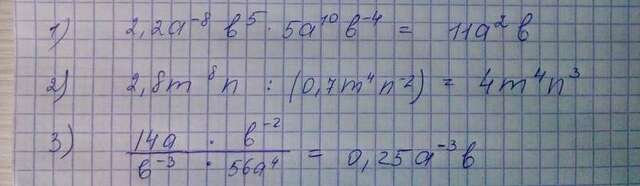 1) 2,2a⁻⁸ b⁵ · 5a¹⁰b⁻⁴ = 11a²b
2) 2,8m⁸n : (0,7m⁴n⁻²) = 4m⁴n³
3) 14a/b⁻³ · b⁻²/56a⁴ = 0,25a⁻³b